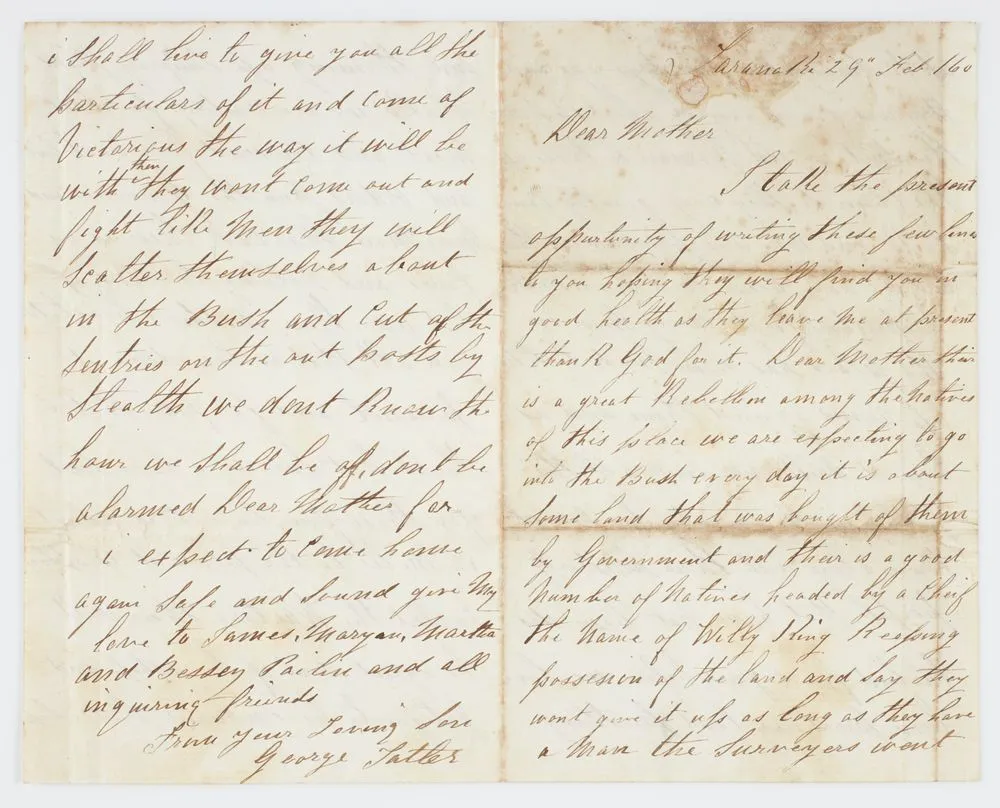 Taranaki 29" Feb /60
Dear Mother
I take the present
oppurtunity of writing these few lines
to you hoping they will find you in
good health as they leave me at present
thank God for it. Dear Mother their
is a great Rebellion among the Natives
of this place we are expecting to go
into the Bush every day it is about
some land that was bought of them
by Government and their is a good
Number of Natives headed by a Cheif
the Name of Willy King Keepping
possesion of the land and say they
wont give it up as long as they have
a Man the Surveyers went
i shall live to give you all the
particulars of it and come of
Victorious the way it will be
with then they wont come out and
fight like Men they will
scatter themselves about
in the Bush and Cut of the
sentries on the out posts by
stealth we dont Know the
hour we shall be off, dont be
alarmed Dear Mother for
i expect to come home
again safe and sound give My
love to James, Maryan, Martha
and Bessey and all
inquiring friends
From your Loving Son
George Tatler